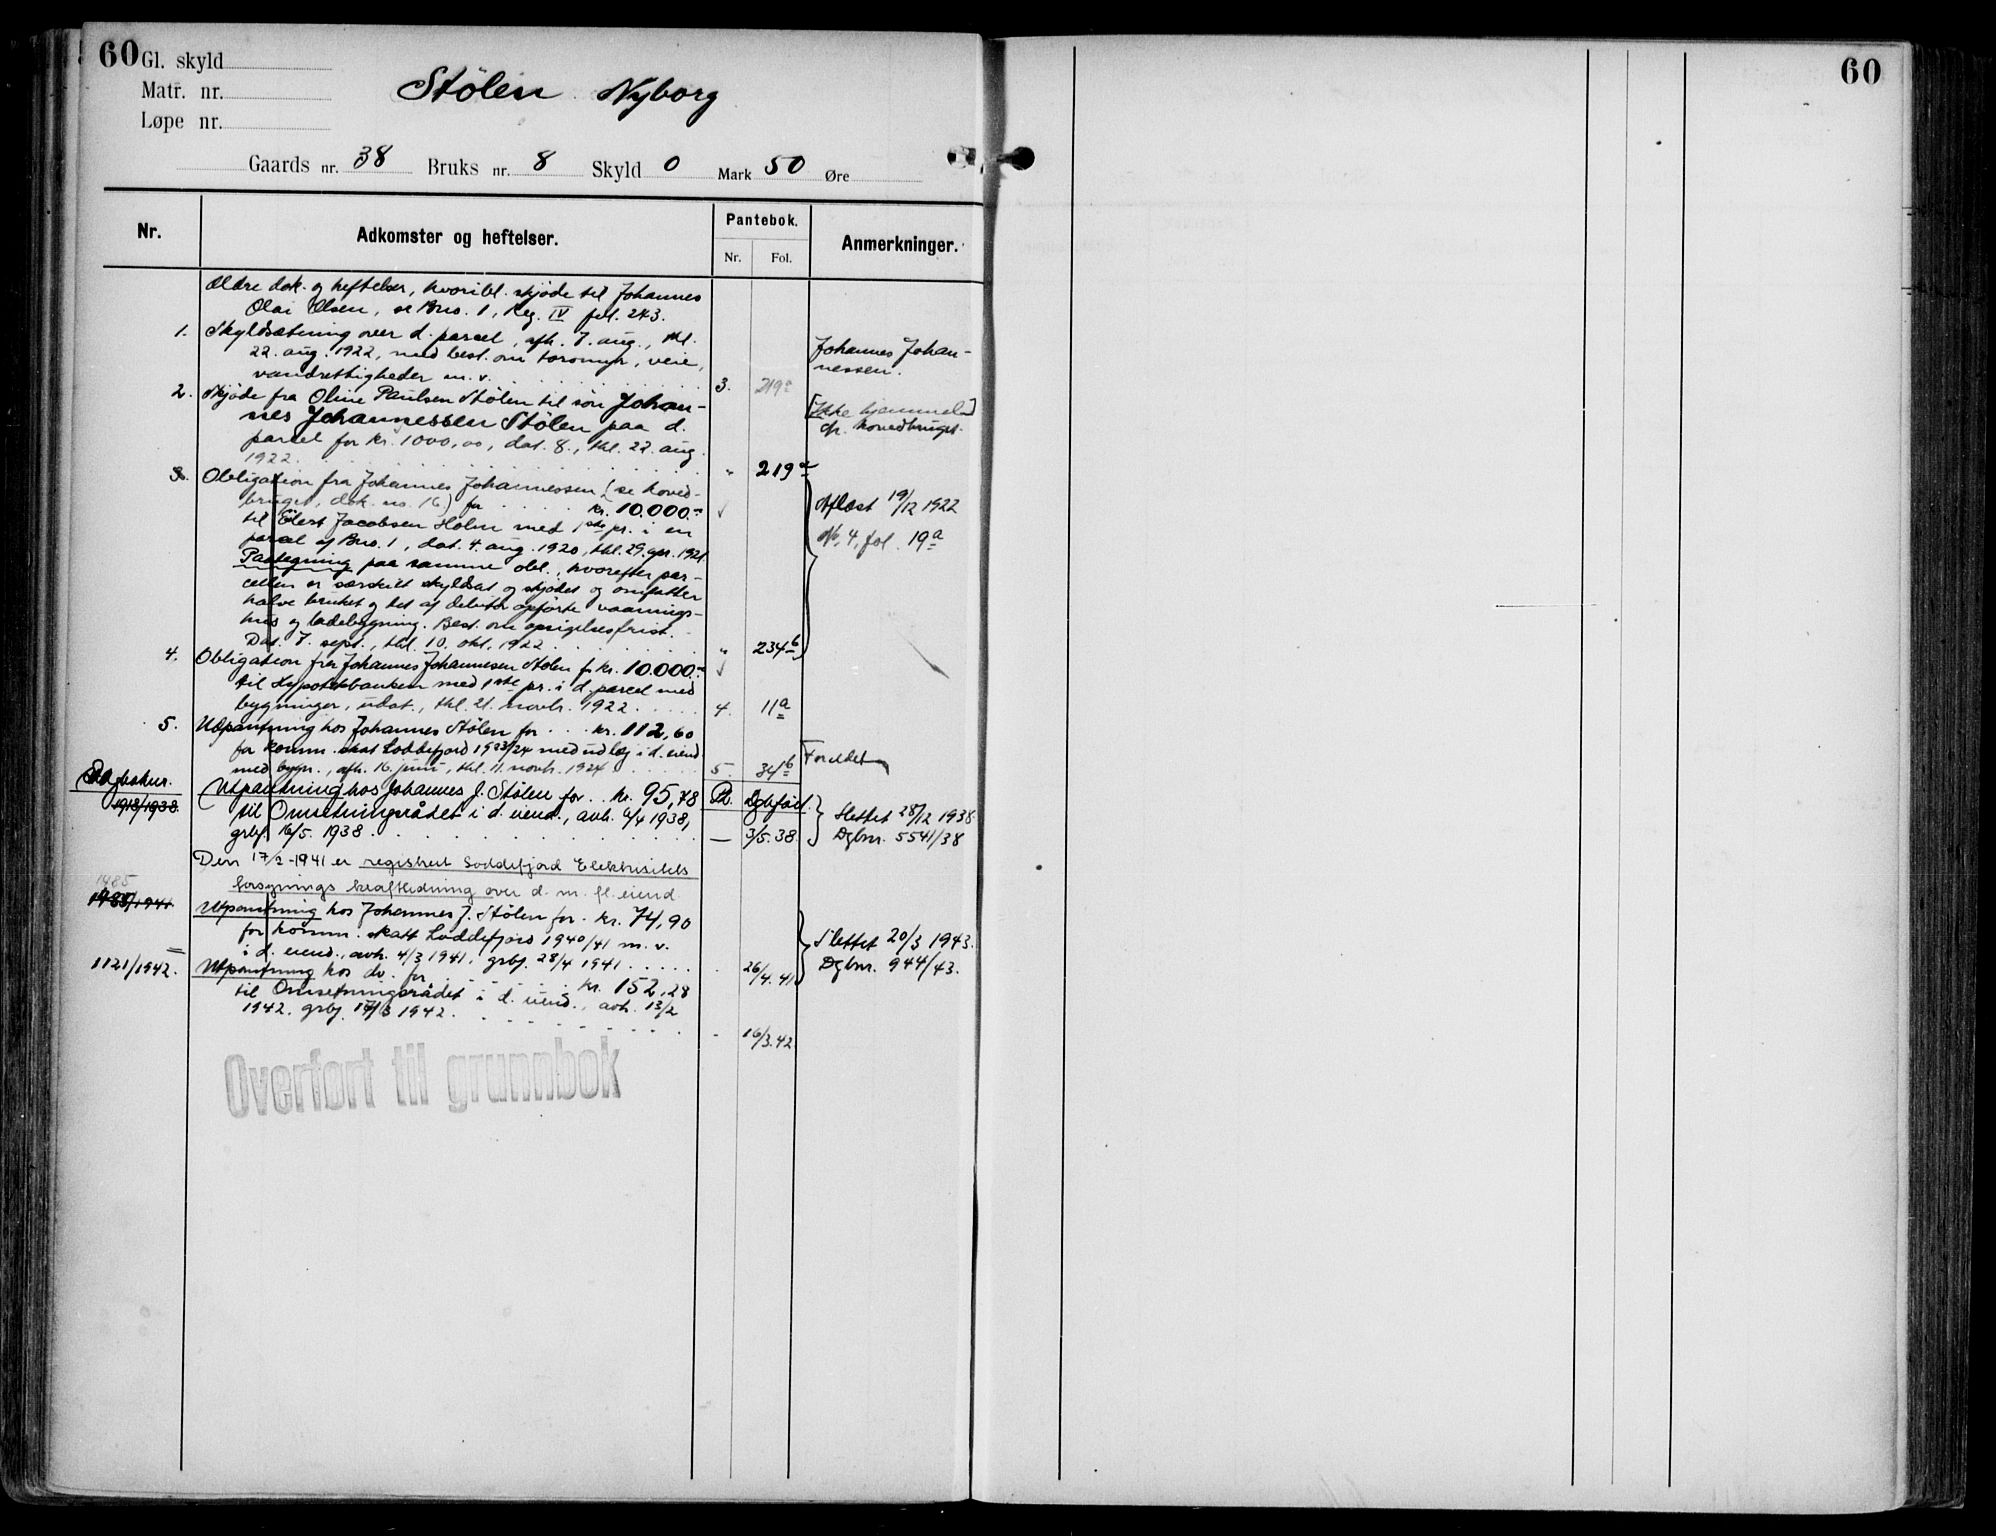 60
Gl. skyld
Matr. nr.
Løpe nr.
Stølen Nyborg
Gaards nr. 38 Bruks nr. 8 Skyld 0 Mark 50 Øre
Nr.
Adkomster og heftelser.
Pantebok.
Nr. Fol.
Anmerkninger.
Ældre dok. og heftelser, hvoribl. skjøde til Johannes
Olai Olsen, se Bno. 1, Reg. IV fol. 243.
1. Skyldsætning over d. parcel, afh. 7. aug., thl.
22. aug. 1922, med best. om torvmyr, veie,
vandrettigheder m. v. 3. 219a
Johannes Johan-
nessen.
2. Skjøde fra Oline Paulsen Stølen til søn Johan-
nes Johannessen Stølen paa d.
parcel for kr. 1000,00, dat. 8., thl. 22. aug.
1922. " 219a
[Ikke hjemmel]
hovedbruget.
3. Obligation fra Johannes Johannessen (se hoved-
bruget, dok. no. 16) for kr. 10.000.-
til Elert Jacobsen Holm med 1ste pr. i en
parcel af Bno. 1, dat. 4. aug. 1920, thl. 29. apr. 1921.
Paategning paa samme obl., hvorefter par-
cellen er særskilt skyldsat og skjødet og omfatter
halve bruket og det af debitor opførte vaanings-
hus og ladebygning. Best. om opsigelsesfrist.
Dat. 7. sept., thl. 10. okt. 1922. " 234b
Aflæst 19/12 1922
No. 4, fol. 19a
4. Obligation fra Johannes Johannesen Stølen for kr. 10.000.-
til Hypotekbanken med 1ste pr. i d. parcel med
bygninger, udat., thl. 21. novbr. 1922. 4. 11a
5. Utpantning hos Johannes Stølen for kr. 112,60
for komm. skat Loddefjord 1923/24 med udlæg i d. eiend.
med bygn., afh. 16. juni, thl. 11. novbr. 1924 5. 34b
[Foreldet]
1918/1938
Utpantning hos Johannes J. Stølen for kr. 95,78 Pb. Dgbført.
til Omsetningsrådet i d. eiend., avh. 1938,
grbf. 16/5. 1938. — 3/5. 38.
Slettet 28/12 1938
Dgbnr. 5541/38
Den 17/2-1941 er registrert Loddefjord Elektrisitets
forsynings kraftledning over d. m. fl. eiend.
1485
/1941
Utpantning hos Johannes J. Stølen for kr. 74,90
for komm. skatt Loddefjord 1940/41 m. v.
i d. eiend., avh. 4/3 1941, grbf. 28/4 1941. 26/4. 41
Slettet 20/3 1943.
Dgbnr. 944/43.
1121/1942. Utpantning hos do. for kr. 152,28
til Omsetningsrådet i d. eiend., avh. 13/2
1942. grbf. 1942. 16/3. 42.
Overført til grunnbok
60